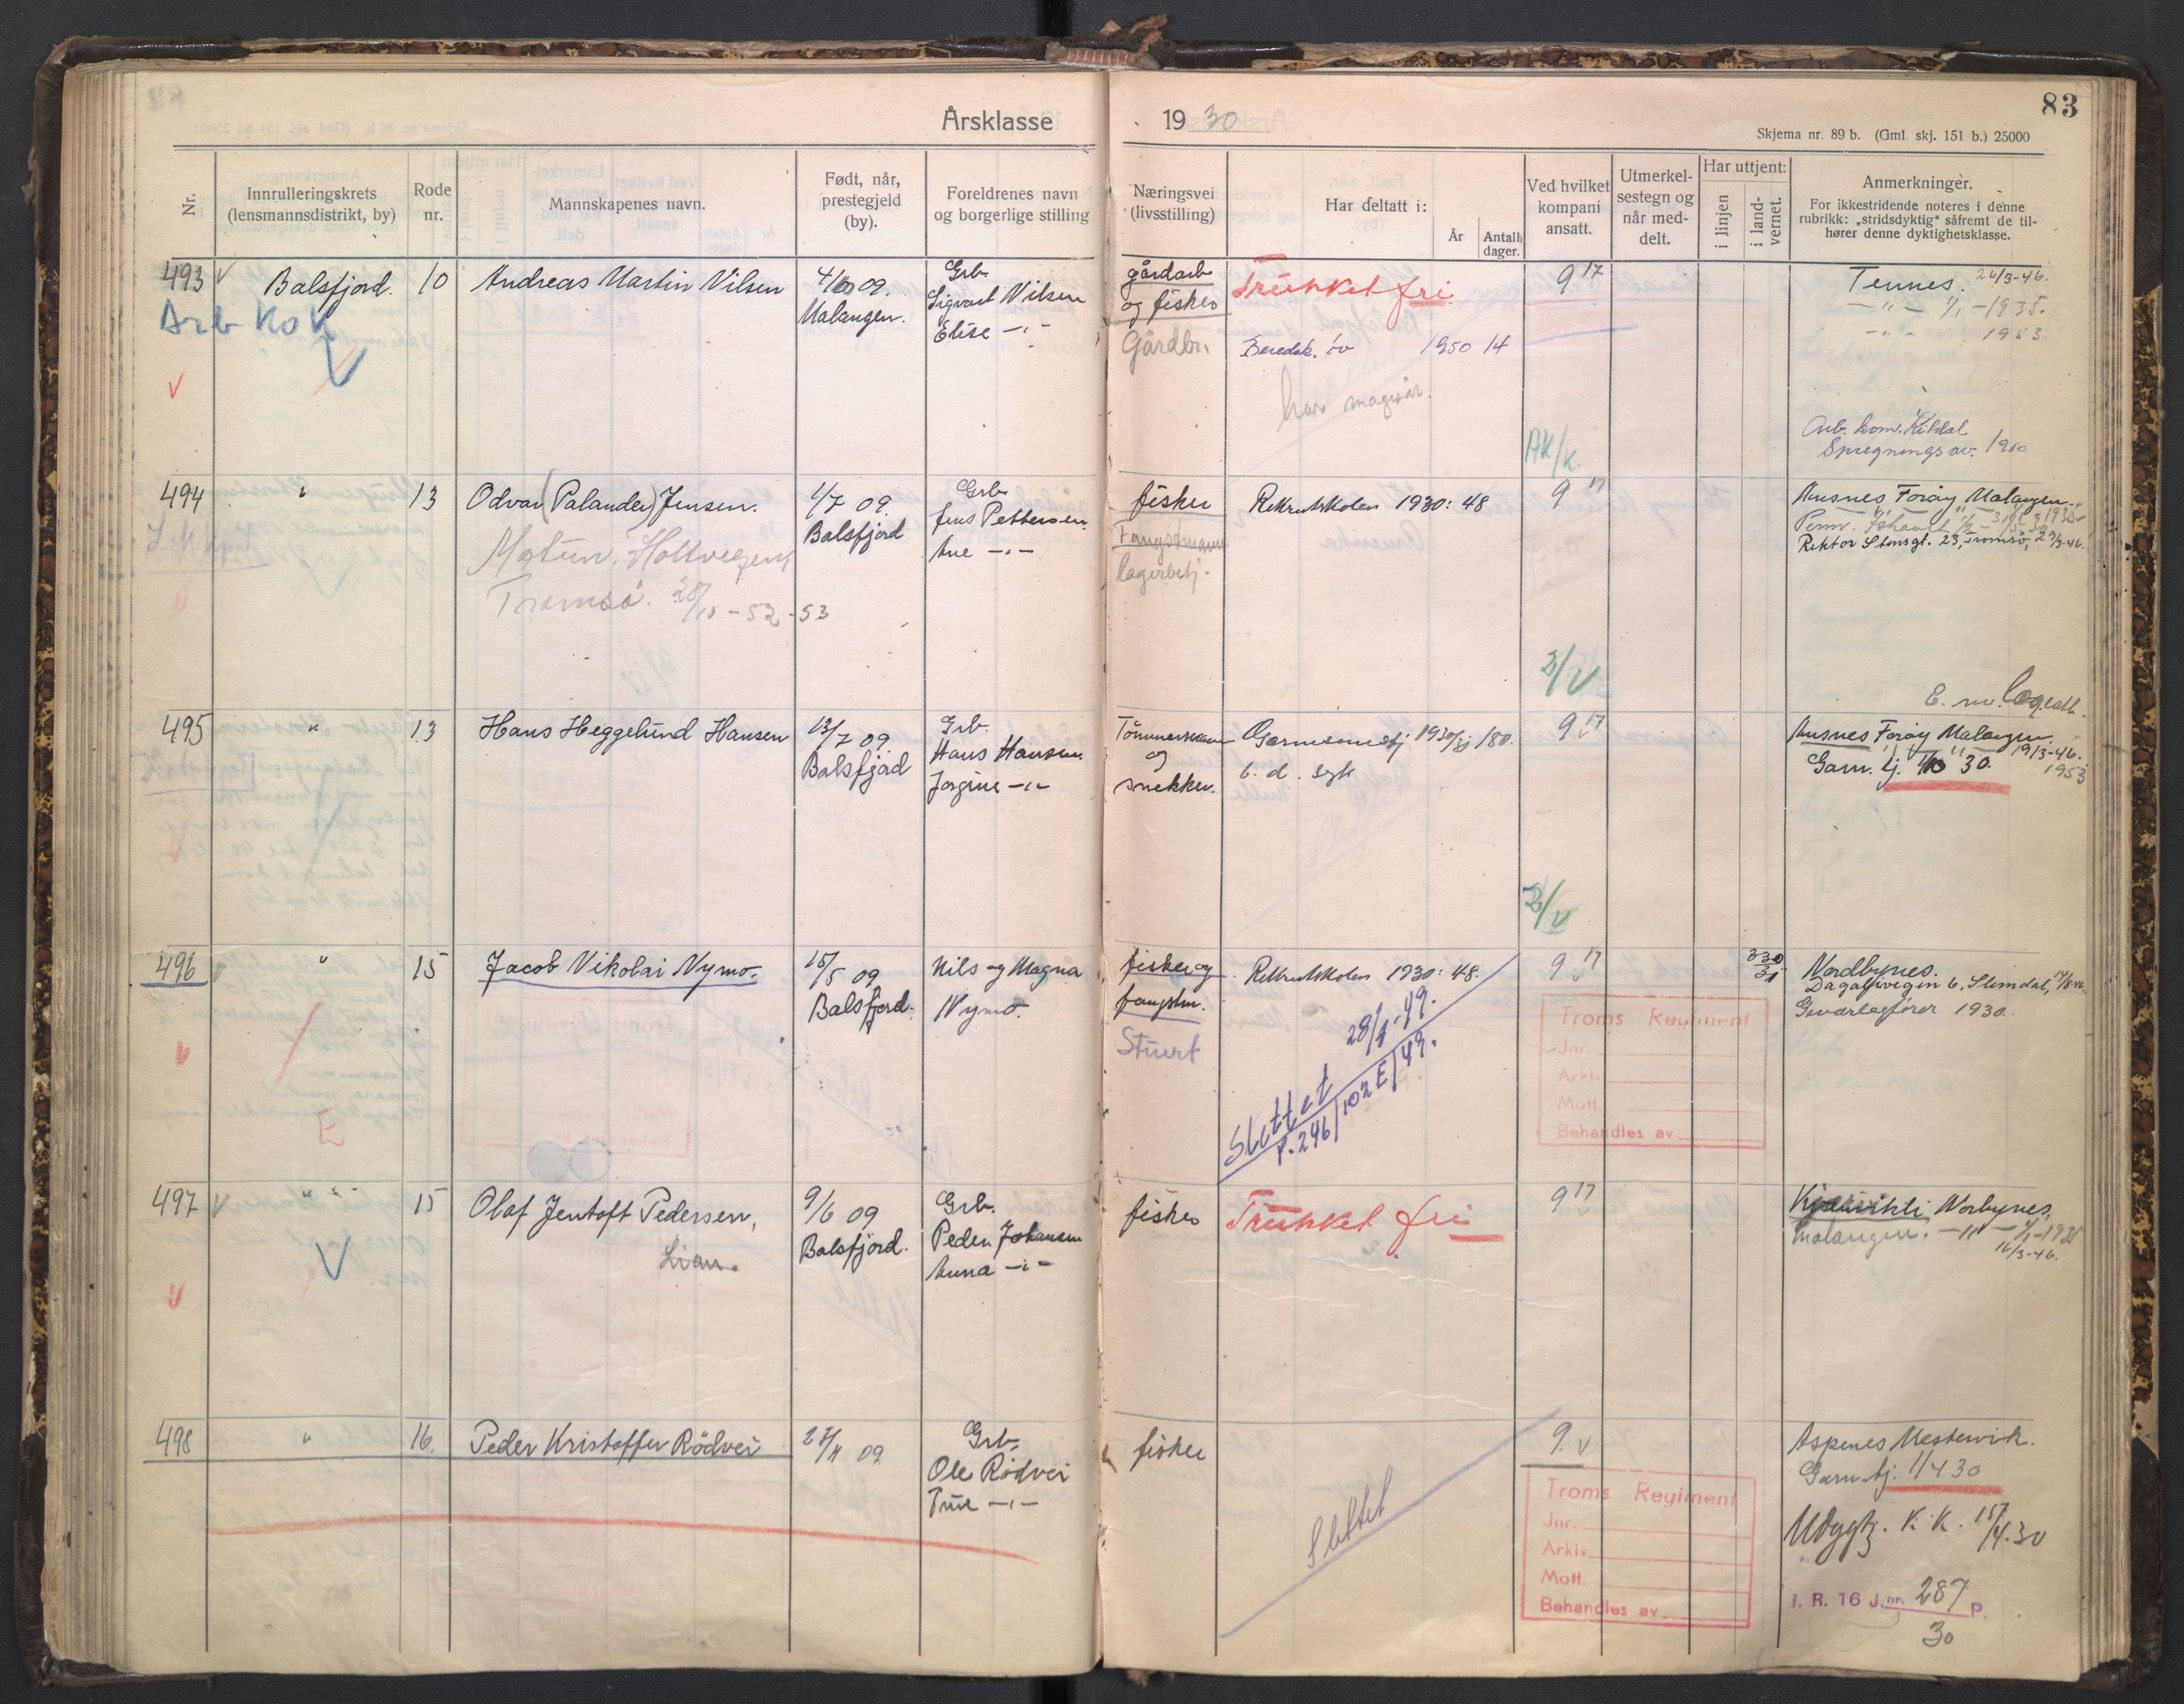 Årsklasse 1930
83
Skjema nr. 89 b. (Gml. skj. 151 b.) 25000
Nr.
Innrulleringskrets
(lensmannsdistrikt, by)
Rode
nr.
Mannskapenes navn.
Født, når,
prestegjeld
(by).
Foreldrenes navn
og borgerlige stilling
Næringsvei
(livsstilling)
Har deltatt i:
År
Antall
dager.
Ved hvilket
kompani
ansatt.
Utmerkel-
sestegn og
når med-
delt.
Har uttjent:
i linjen
i land-
vernet.
Anmerkninger.
For ikkestridende noteres i denne
rubrikk: „stridsdyktig“ såfremt de til-
hører denne dyktighetsklasse.
493 Balsfjord. 10 Andreas Martin Nilsen
Arb Ko
09.
Malangen.
Grb.
Sigvart Nilsen
Elise -"-
gårdarb
og fisker
Gårdbr.
Trukket fri
Beredsk. øv 1950 14
har magesår.
9 17
AK/k.
Tennes. 26/3-46.
-"- 1/1-1935.
-"- 1953
Arb. kom.
Spregnings 1950
494 " 13 Odvar (Palander) Jensen.
Holtvegen
Tromsø. 28/10-52-53
1/7 09.
Balsfjord
Grb.
Jens Pettersen
Ane -"-
fisker
Fangstmann
lagerbetj.
Rekrutskolen 1930: 48
9 17
3/V
Ausnes Forøy Malangen.
Rektor Stensgt. 23, Tromsø,
495 " 13 Hans Heggelund Hansen
13/7 09
Balsfjord
Grb.
Hans Hansen.
Jorgine -"-
Tömmermann
og
snekker.
Garnisonstj 1930/31 180.
6. d. syk
9 17
3/V
Ausnes Forøy Malangen.
19/3-46.
1953
Garn. tj. 1/10 30.
496 " 15 Jacob Nikolai Nymo.
E
15/5 09
Balsfjord.
Nils og Magna
Nymo.
fisker og
fangstm.
Stuert
Rekrutskolen 1930: 48.
Slettet 28/1-49.
P. 246/102 E/49.
9 17
330
31
Nordbynes.
Geværlagfører 1930.
Troms Regiment
Jnr.
Arkiv
Mott.
Behandles av
497 " 15 Olaf Jentoft Pedersen,
Lian.
9/6 09
Balsfjord.
Grb.
Peder Johansen
Anna -"-
fisker
Trukket fri
9 17
Norbynes,
Malangen. -"- 1/1-1935
16/3-46.
498 " 16. Peder Kristoffer Rödvei
27/11 09
Grb.
Ole Rödvei
Trine -"-
fisker
Slettet
9.
Troms Regiment
Jnr.
Arkiv.
Mott.
Behandles av
Aspenes Mestervik.
Garn. tj. 1/4 30
Udygtg. K. K. 15/4.30
I. R. 16 J. nr. 287 P.
30